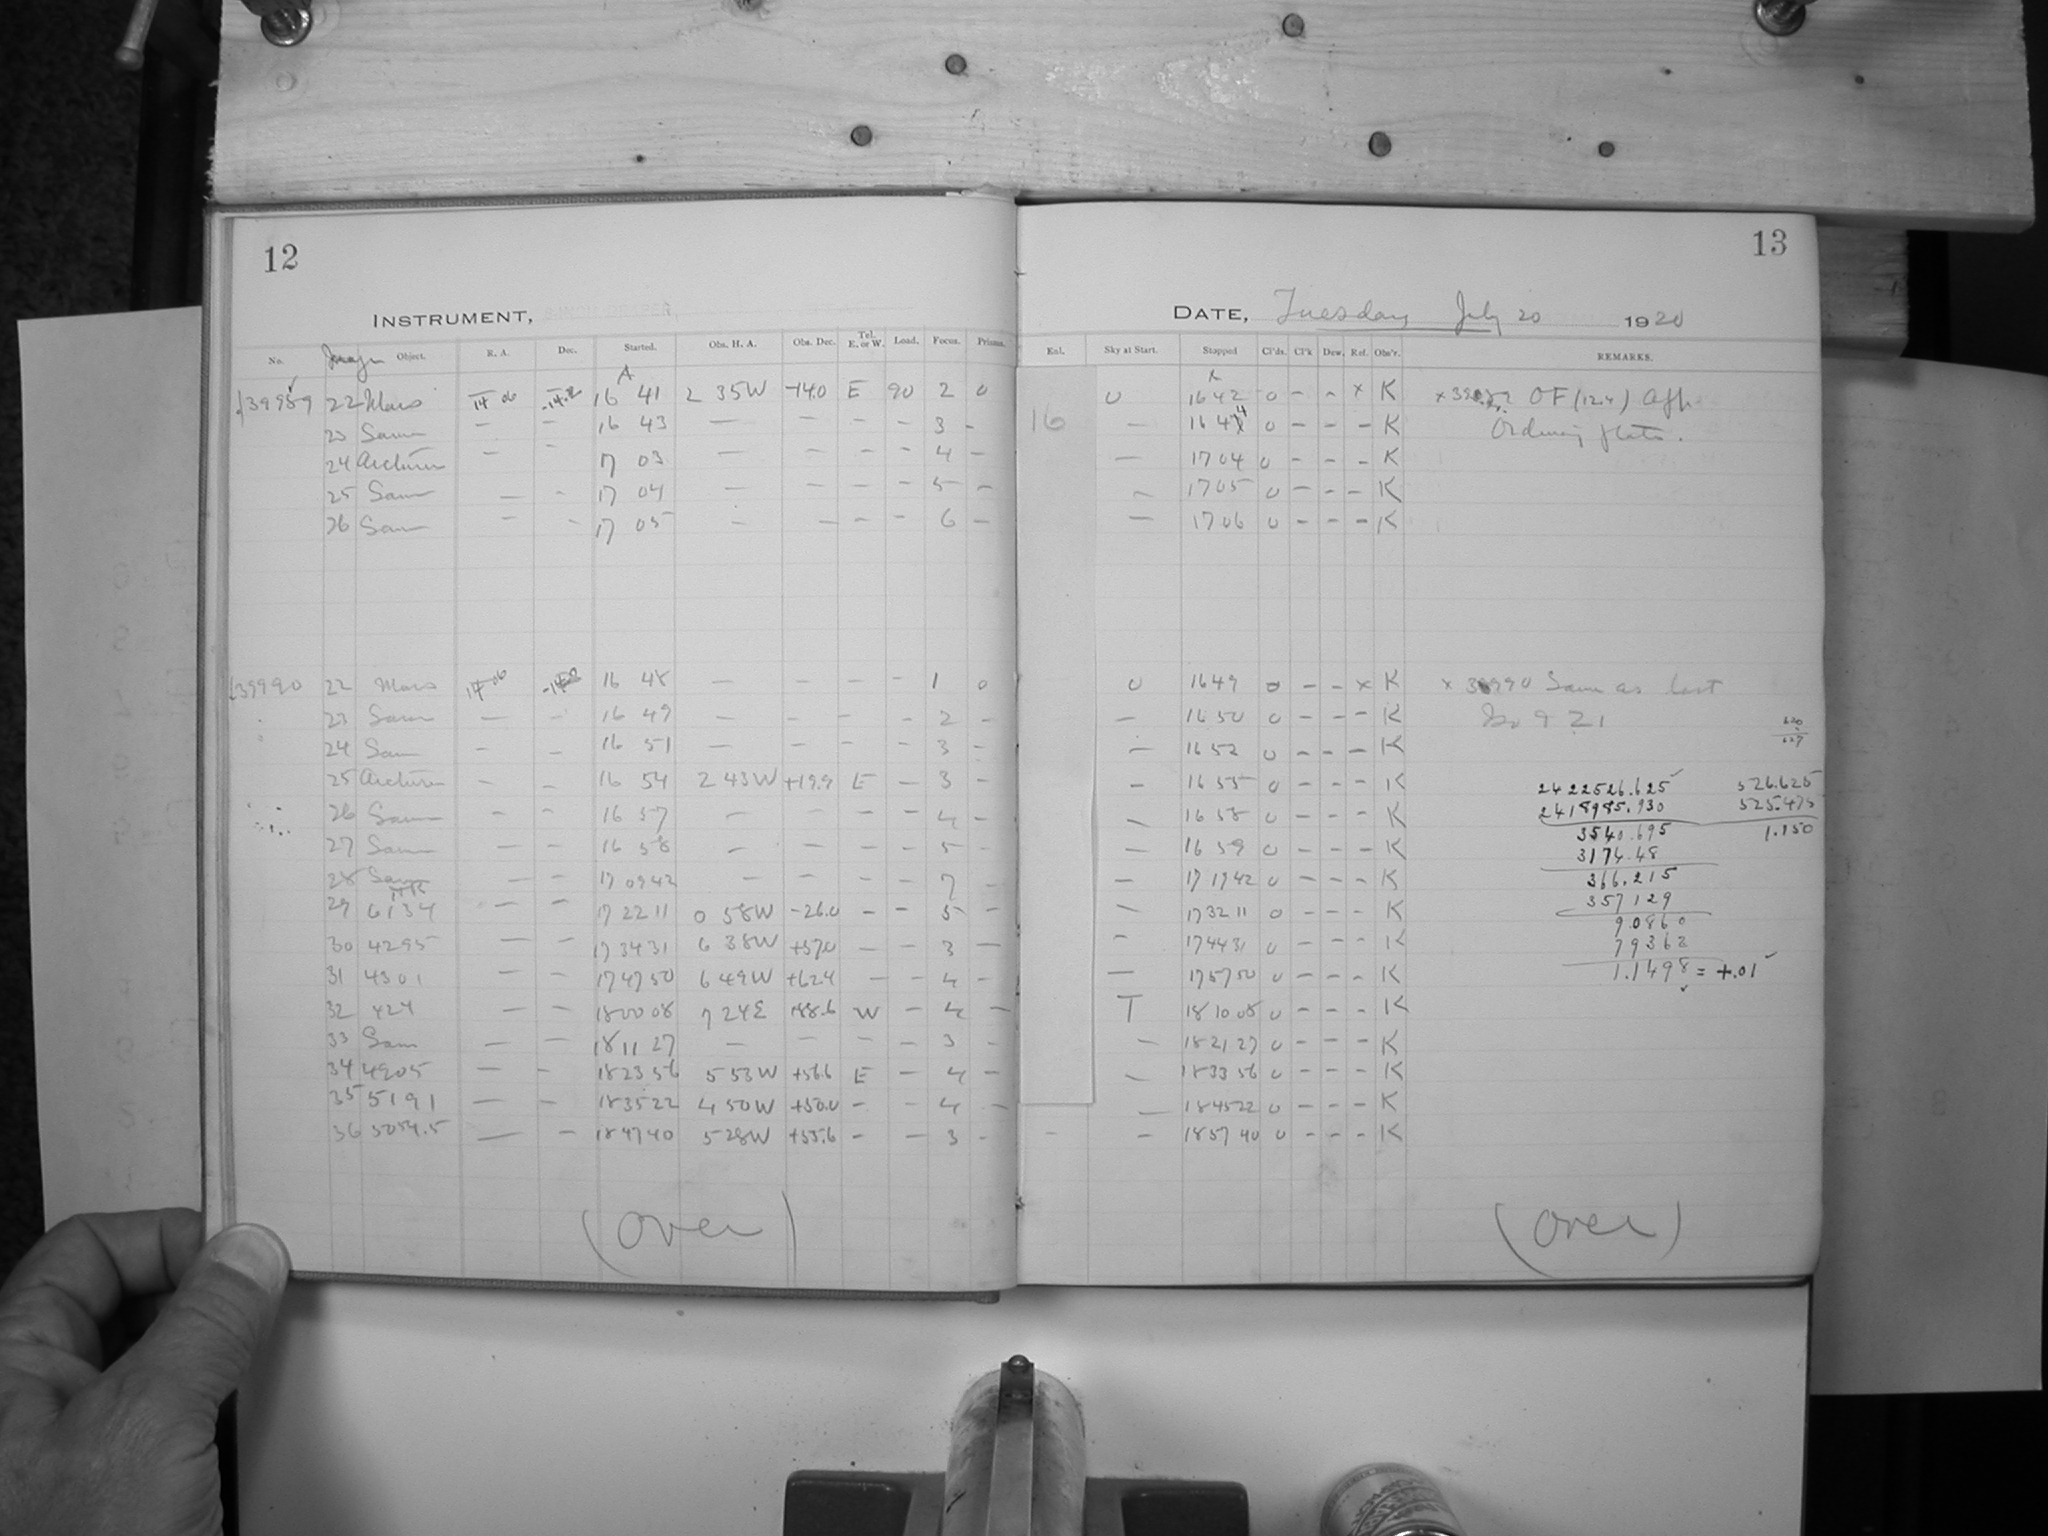 12
INSTRUMENT,
No. Image Object. R. A. Dec. Started. Obs. H. A. Obs. Dec. Tel. E. or W. Load. Focus. Prisms.
39989 22 Mars 14 06 -14.2 16 41 2 35W -14.0 E 90 2 0
23 Same — — 16 43 — — — — 3 -
24 Arcturus — — 17 03 — — — — 4 —
25 Same — — 17 04 — — — — 5 —
26 Same — — 17 05 — — — — 6 —
39990 22 Mars 14 06 16 48 — — — — 1 0
23 Same — — 16 49 — — — — 2 -
24 Same — — 16 51 — — — — 3 -
25 Arcturus — — 16 54 2 43W +19.9 E — 3 -
26 Same — — 16 57 — — — — 4 -
27 Same — — 16 58 — — — — 5 -
28 Same — — 17 09 42 — — — — 7 -
HR
29 6134 — — 17 22 11 0 58W -26.0 — — 5 —
30 4295 — — 17 34 31 6 38W +57.0 — — 3 —
31 4301 — — 17 47 50 6 49W +62.4 — — 4 -
32 424 — — 18 00 08 7 24E +88.6 W — 4 —
33 Same — — 18 11 27 — — — — 3 -
34 4905 — — 18 23 56 5 53W +56.6 E — 4 —
35 5191 — — 18 35 22 4 50W +50.0 — — 4 —
36 5054.5 — — 18 47 40 5 28W +55.6 — — 3 -
(over)
13
DATE, Tuesday July 20 1920
Enl. Sky at Start. Stopped Cl'ds. Cl'k Dew. Ref. Obs'r. REMARKS.
0 16 42 0 - - x K x OF (12.4) Aff.
16 — 16 44 0 - - - K Ordinary plate.
— 17 04 0 - - - K
— 17 05 0 - - - K
— 17 06 0 - - - K
0 16 49 0 - - x K x 39990 Same as last
— 16 50 0 - - - K
— 16 52 0 - - - K
627
— 16 55 0 - - - K 2422526.625 526.625
— 16 58 0 - - - K 2418985.930 525.475
— 16 59 0 - - - K 3540.695 1.150
3174.48
— 17 19 42 0 - - - K 366.215
— 17 32 11 0 - - - K 357129
9.0860
— 17 44 31 0 - - - K 79362
— 17 57 50 0 - - - K 1.1498 = +.01
T 18 10 08 0 - - - K
— 18 21 27 0 - - - K
— 18 33 56 0 - - - K
— 18 45 22 0 - - - K
- — 18 57 40 0 - - - K
(over)